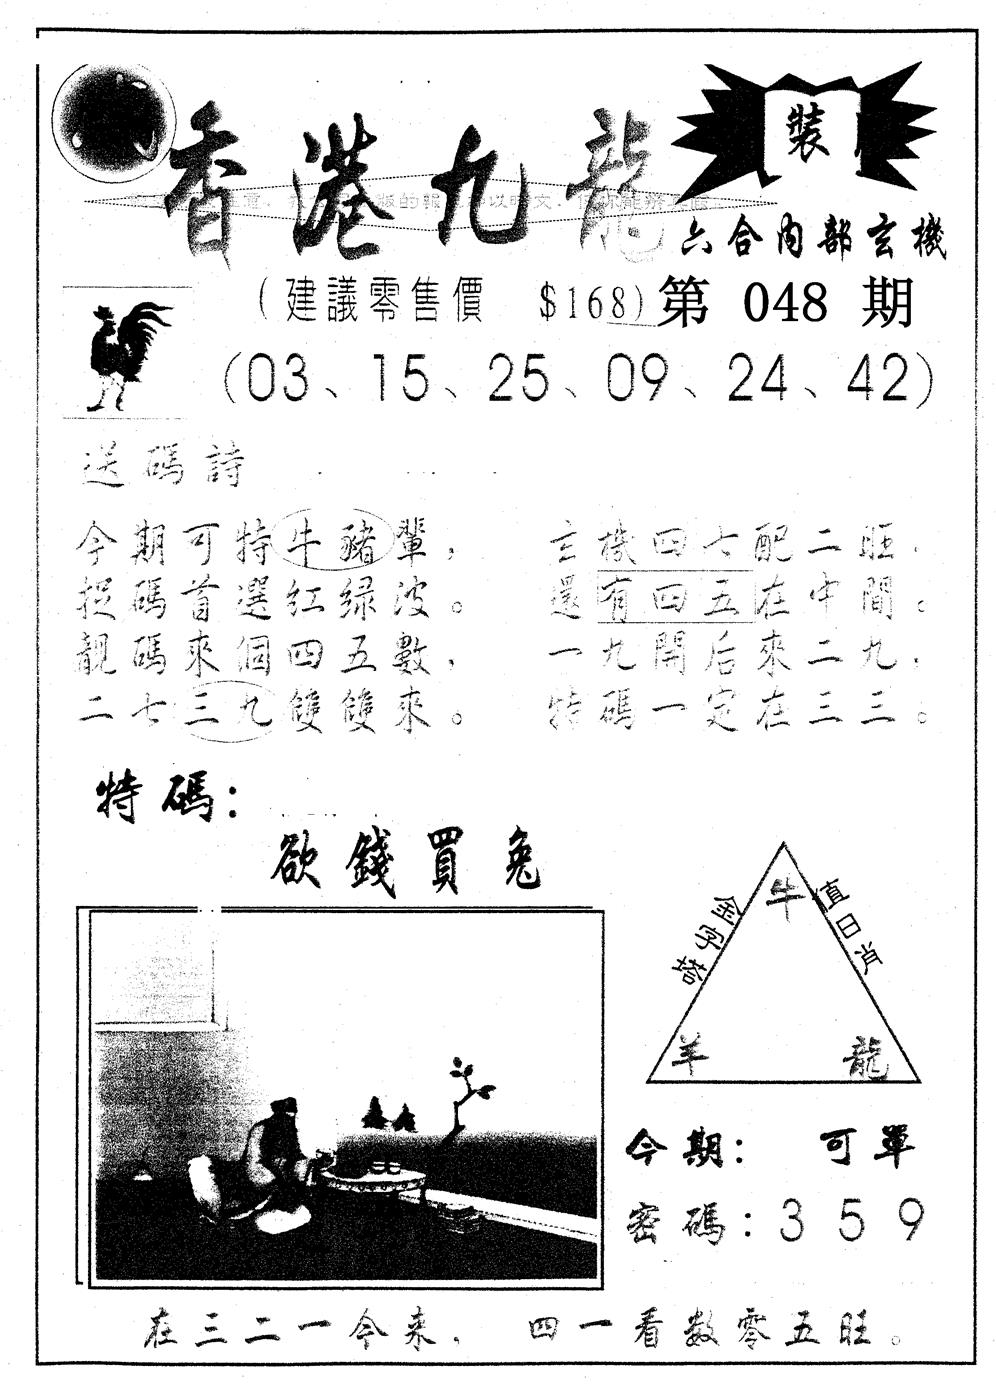 香港九龍
裝
六合內部玄機
(建議零售價 $168)第 048 期
(03、15、25、09、24、42)
送碼詩
今期可特牛豬輩，
捉碼首選红绿波。
靓碼來個四五數，
二七三九雙雙來。
玄機四七配二旺，
還有四五在中間。
一九開后來二九，
特碼一定在三三。
特碼：
欲錢買兔
金字塔
牛
值日肖
羊 龍
今期： 可單
密碼：359
在三二一今来， 四一看数零五旺。